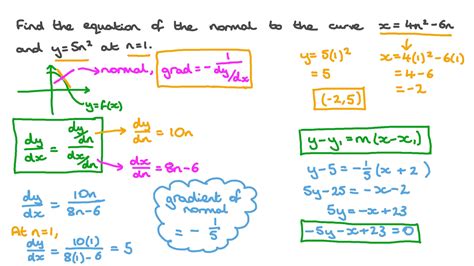 Find the equation of the normal to the curve x = 4n² - 6n
and y = 5n² at n = 1.
normal, grad = - 1/(dy/dx)
y = f(x)
y = 5(1)²
= 5
x = 4(1)² - 6(1)
= 4 - 6
= -2
(-2, 5)
dy/dx = (dy/dn)/(dx/dn)
dy/dn = 10n
dx/dn = 8n - 6
dy/dx = 10n/(8n - 6)
At n = 1,
dy/dx = 10(1)/(8(1) - 6) = 5
gradient of
normal
= - 1/5
y - y₁ = m(x - x₁)
y - 5 = - 1/5 (x + 2)
5y - 25 = -x - 2
5y = -x + 23
-5y - x + 23 = 0